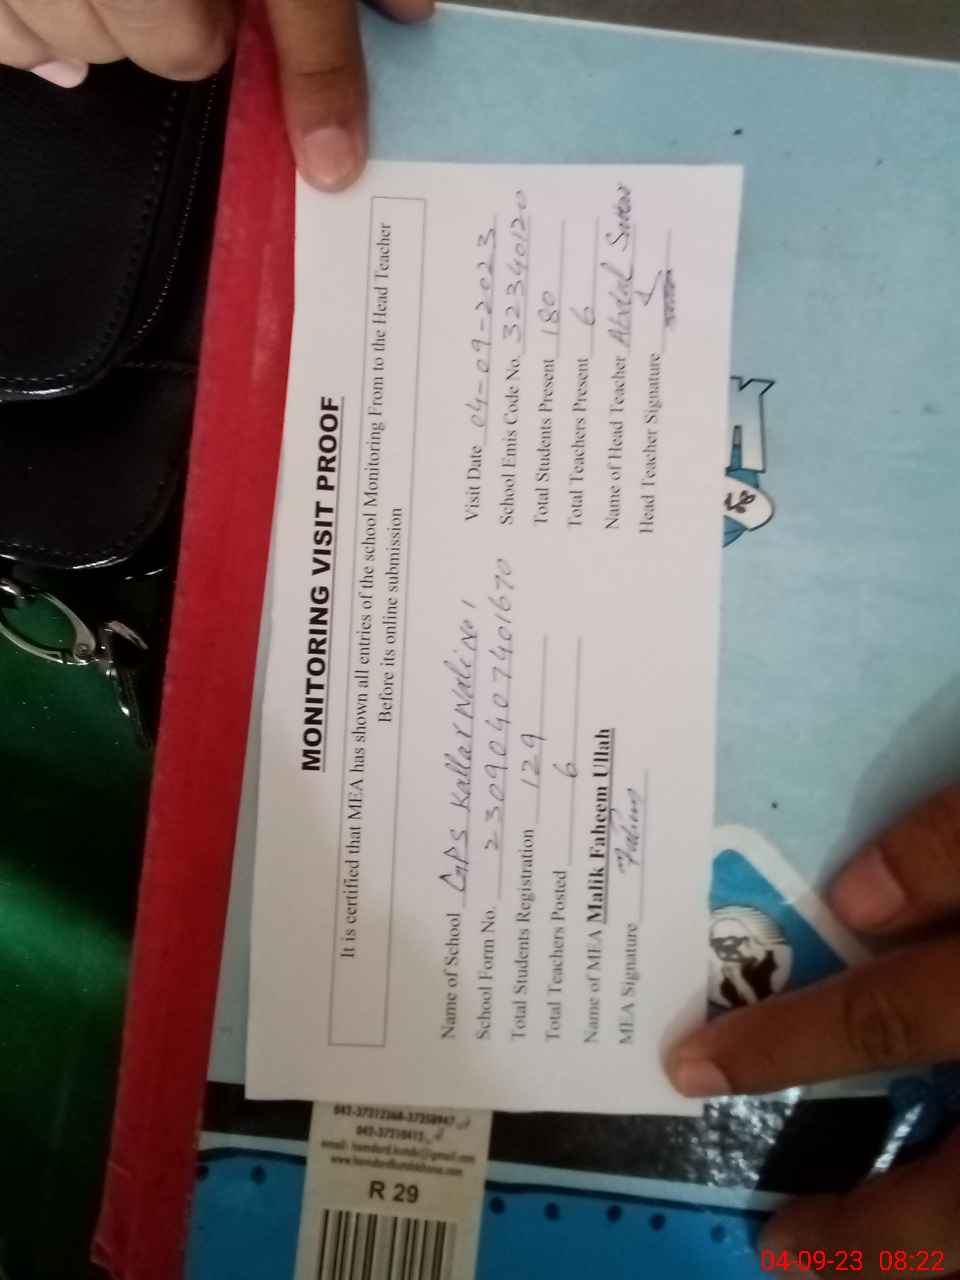 MONITORING VISIT PROOF
It is certified that MEA has shown all entries of the school Monitoring From to the Head Teacher
Before its online submission
Name of School GPS Kallar Wali No 1
Visit Date 04-09-2023
School Form No. 23090407401670
School Emis Code No. 32340120
Total Students Registration 129
Total Students Present 180
Total Teachers Posted 6
Total Teachers Present 6
Name of MEA Malik Faheem Ullah
Name of Head Teacher Abdul
MEA Signature Faheem
Head Teacher Signature
042-37310413
R 29
04-09-23 08:22